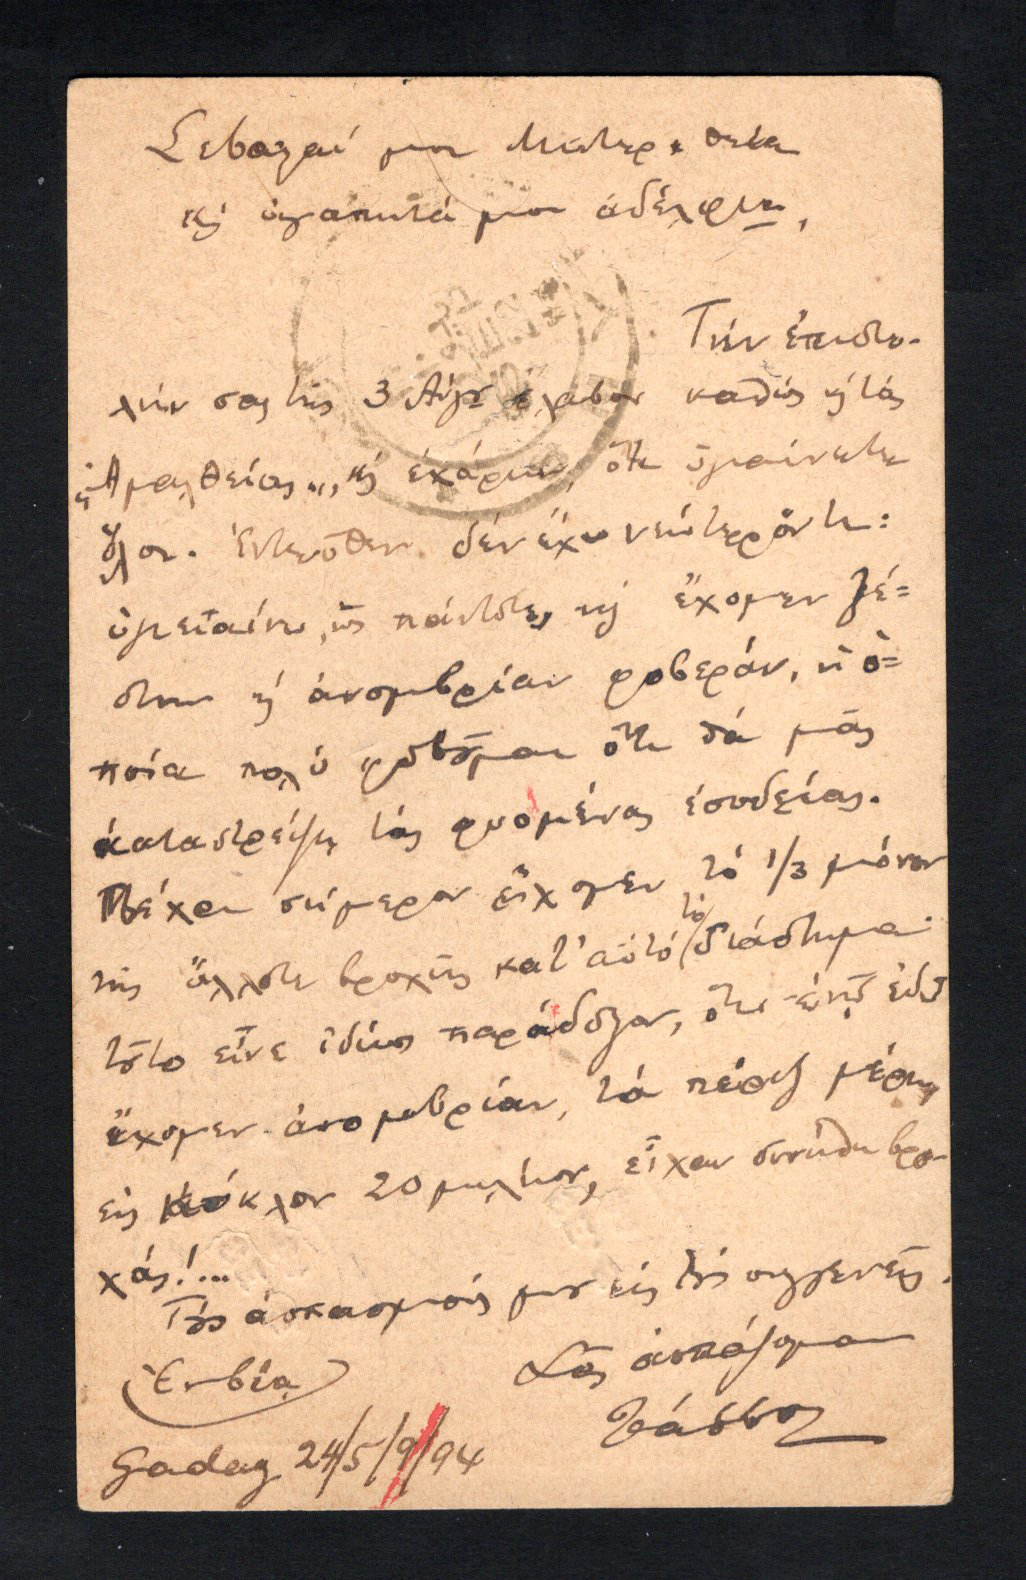 Σεβασταί μου Μῆτερ & θεία
κὶ ἀγαπητά μου ἀδέλφια,
Τὴν ἐπιστο-
λήν σας τῆς 3 Αὐγ. ἔλαβον καθὼς κὶ τὰς
"Ἀμαλθείας", κὶ ἐχάρην, ὅτι ὑγιαίνετε
ὅλοι. Ἐντεῦθεν δὲν ἔχω νεώτερόν τι:
ὑγιαίνω, ὡς πάντοτε, κὶ ἔχομεν ζέ=
στην κὶ ἀνομβρίαν φοβεράν, ἡ ὁ=
ποία πολὺ φοβοῦμαι ὅτι θὰ μᾶς
καταστρέψῃ τὰς φυομένας ἐσοδείας.
Μέχρι σήμερον εἴχομεν τὸ 1/3 μόνον
τῆς ἄλλοτε βροχῆς κατ' αὐτὸ τὸ διάστημα·
τοῦτο εἶνε ἰδίως παράδοξον, ὅτι ἐνῷ ἐδῶ
ἔχομεν ἀνομβρίαν, τὰ πέριξ μέρη,
εἰς κύκλον 20 μιλίων, εἶχον συνήθεις βρο-
χάς!...
Τοὺς ἀσπασμούς μου εἰς τοὺς συγγενεῖς.
Σᾶς ἀσπάζομαι
Τάσσος
Gadag 24/5/9/94